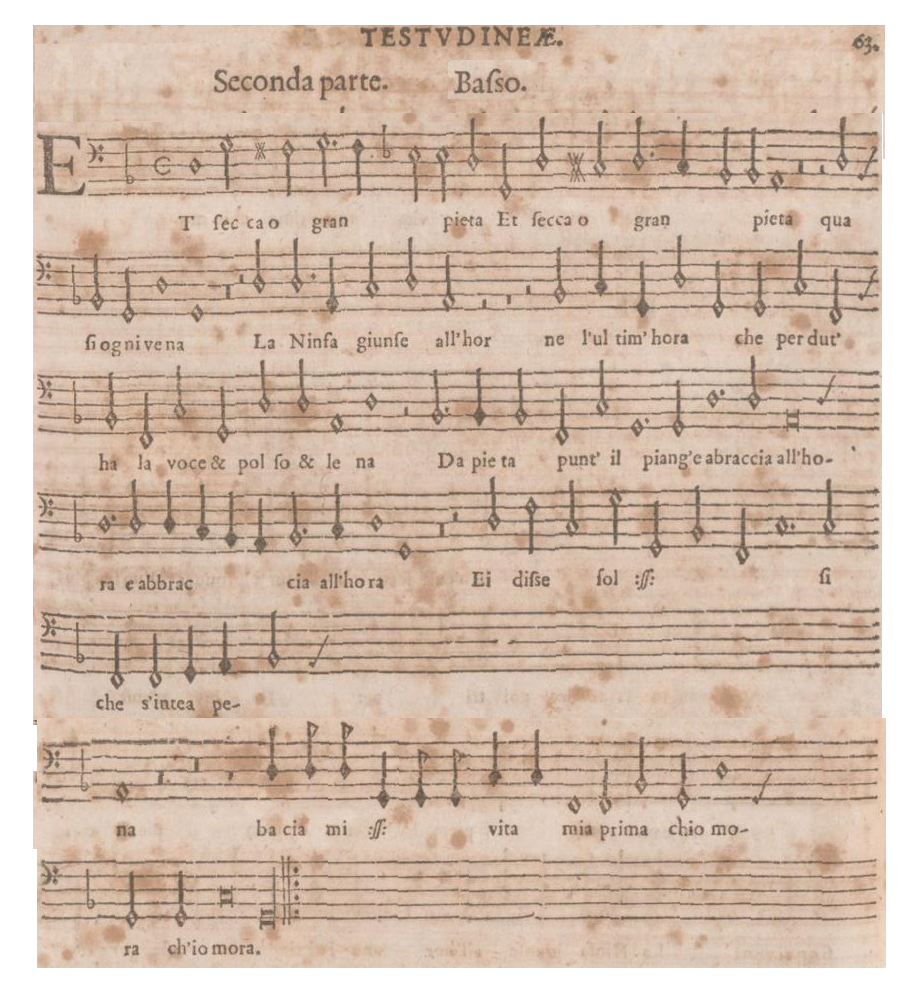 TESTVDINEÆ.
63.
Seconda parte. Baſso.
ET ſec ca o gran pieta Et ſecca o gran pieta qua
ſi ogni ve na La Ninfa giunſe all'hor ne l'ul tim' hora che perdut'
ha la voce & pol ſo & le na Da pie ta punt' il piang'e abraccia all'ho-
ra e abbrac cia all'hora Ei diſse ſol :ſſ: ſi
che s'intea pe-
na ba cia mi :ſſ: vita mia prima chio mo-
ra ch'io mora.